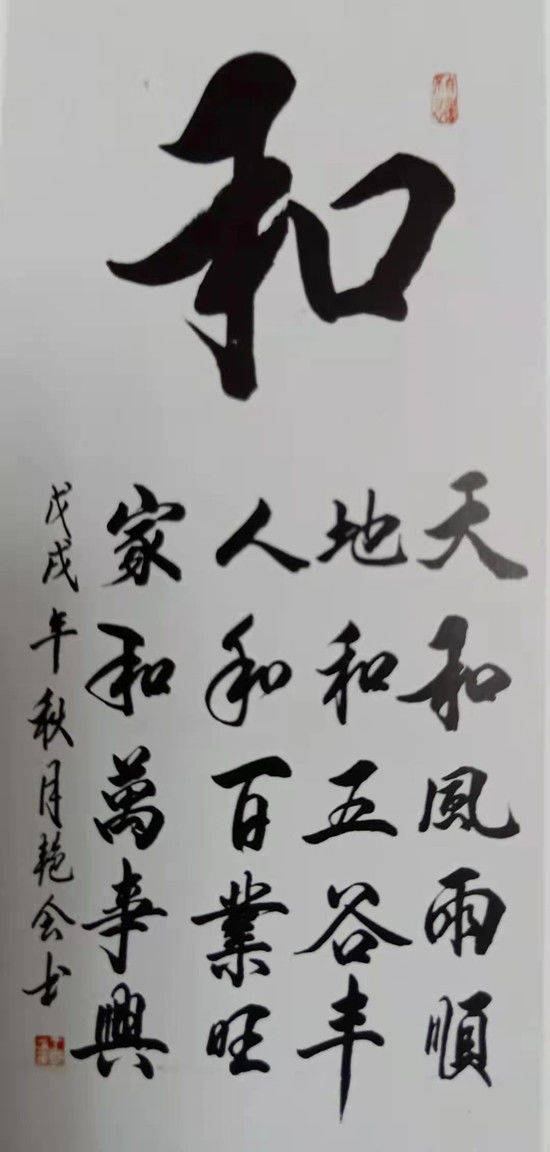 和
天和風雨順
地和五谷丰
人和百業旺
家和萬事興
戊戌年秋月艳会书